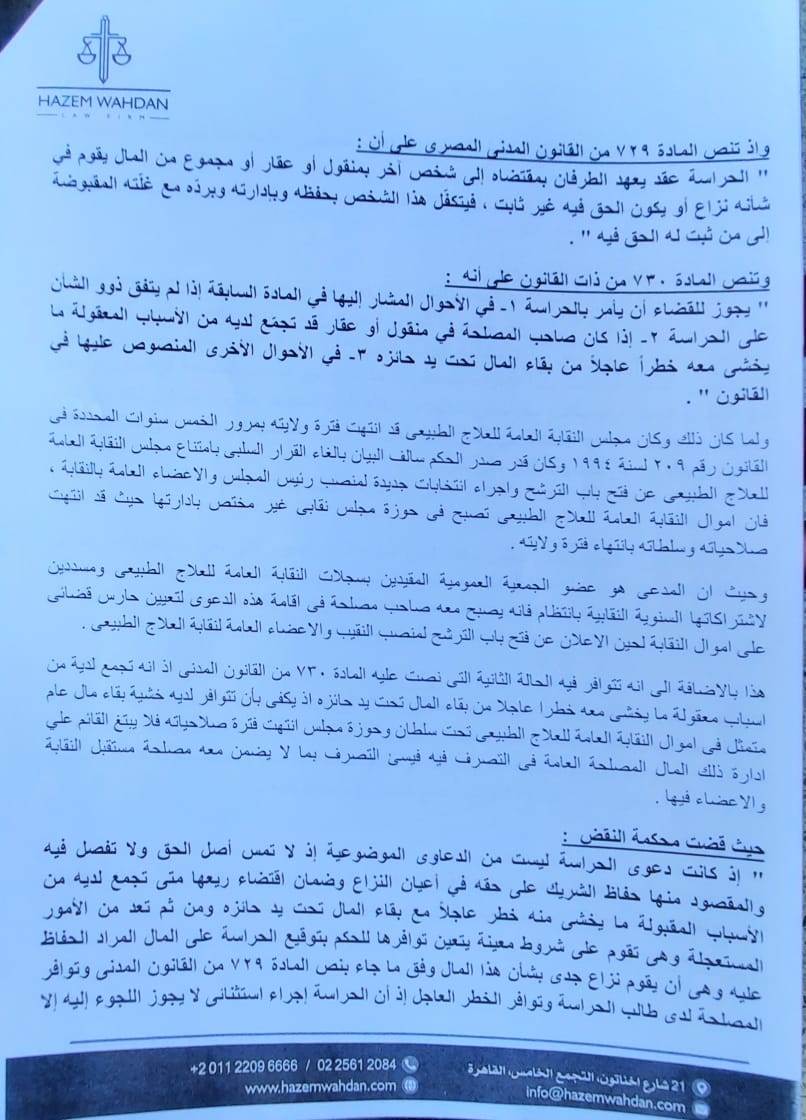 HAZEM WAHDAN
LAW FIRM
واذ تنص المادة ٧٢٩ من القانون المدنى المصرى على أن :
" الحراسة عقد يعهد الطرفان بمقتضاه إلى شخص آخر بمنقول أو عقار أو مجموع من المال يقوم في
شأنه نزاع أو يكون الحق فيه غير ثابت ، فيتكفّل هذا الشخص بحفظه وبإدارته وبردّه مع غلّته المقبوضة
إلى من ثبت له الحق فيه " .
وتنص المادة ٧٣٠ من ذات القانون على أنه :
" يجوز للقضاء أن يأمر بالحراسة ١- في الأحوال المشار إليها في المادة السابقة إذا لم يتفق ذوو الشأن
على الحراسة ٢- إذا كان صاحب المصلحة في منقول أو عقار قد تجمّع لديه من الأسباب المعقولة ما
يخشى معه خطراً عاجلاً من بقاء المال تحت يد حائزه ٣- في الأحوال الأخرى المنصوص عليها في
القانون " .
ولما كان ذلك وكان مجلس النقابة العامة للعلاج الطبيعى قد انتهت فترة ولايته بمرور الخمس سنوات المحددة فى
القانون رقم ٢٠٩ لسنة ١٩٩٤ وكان قدر صدر الحكم سالف البيان بالغاء القرار السلبى بامتناع مجلس النقابة العامة
للعلاج الطبيعى عن فتح باب الترشح واجراء انتخابات جديدة لمنصب رئيس المجلس والاعضاء العامة بالنقابة ،
فان اموال النقابة العامة للعلاج الطبيعى تصبح فى حوزة مجلس نقابى غير مختص بادارتها حيث قد انتهت
صلاحياته وسلطاته بانتهاء فترة ولايته .
وحيث ان المدعى هو عضو الجمعية العمومية المقيدين بسجلات النقابة العامة للعلاج الطبيعى ومسددين
لاشتراكاتها السنوية النقابية بانتظام فانه يصبح معه صاحب مصلحة فى اقامة هذه الدعوى لتعيين حارس قضائى
على اموال النقابة لحين الاعلان عن فتح باب الترشح لمنصب النقيب والاعضاء العامة لنقابة العلاج الطبيعى .
هذا بالاضافة الى انه تتوافر فيه الحالة الثانية التى نصت عليه المادة ٧٣٠ من القانون المدنى اذ انه تجمع لدية من
اسباب معقولة ما يخشى معه خطرا عاجلا من بقاء المال تحت يد حائزه اذ يكفى بأن تتوافر لديه خشية بقاء مال عام
متمثل فى اموال النقابة العامة للعلاج الطبيعى تحت سلطان وحوزة مجلس انتهت فترة صلاحياته فلا يبتغ القائم علي
ادارة ذلك المال المصلحة العامة فى التصرف فيه فيسئ التصرف بما لا يضمن معه مصلحة مستقبل النقابة
والاعضاء فيها .
حيث قضت محكمة النقض :
" إذ كانت دعوى الحراسة ليست من الدعاوى الموضوعية إذ لا تمس أصل الحق ولا تفصل فيه
والمقصود منها حفاظ الشريك على حقه في أعيان النزاع وضمان اقتضاء ريعها متى تجمع لديه من
الأسباب المقبولة ما يخشى منه خطر عاجلاً مع بقاء المال تحت يد حائزه ومن ثم تعد من الأمور
المستعجلة وهى تقوم على شروط معينة يتعين توافرها للحكم بتوقيع الحراسة على المال المراد الحفاظ
عليه وهى أن يقوم نزاع جدى بشأن هذا المال وفق ما جاء بنص المادة ٧٢٩ من القانون المدنى وتوافر
المصلحة لدى طالب الحراسة وتوافر الخطر العاجل إذ أن الحراسة إجراء استثنائى لا يجوز اللجوء إليه إلا
+2 011 2209 6666 / 02 2561 2084
www.hazemwahdan.com
21 شارع اخناتون، التجمع الخامس، القاهرة
info@hazemwahdan.com